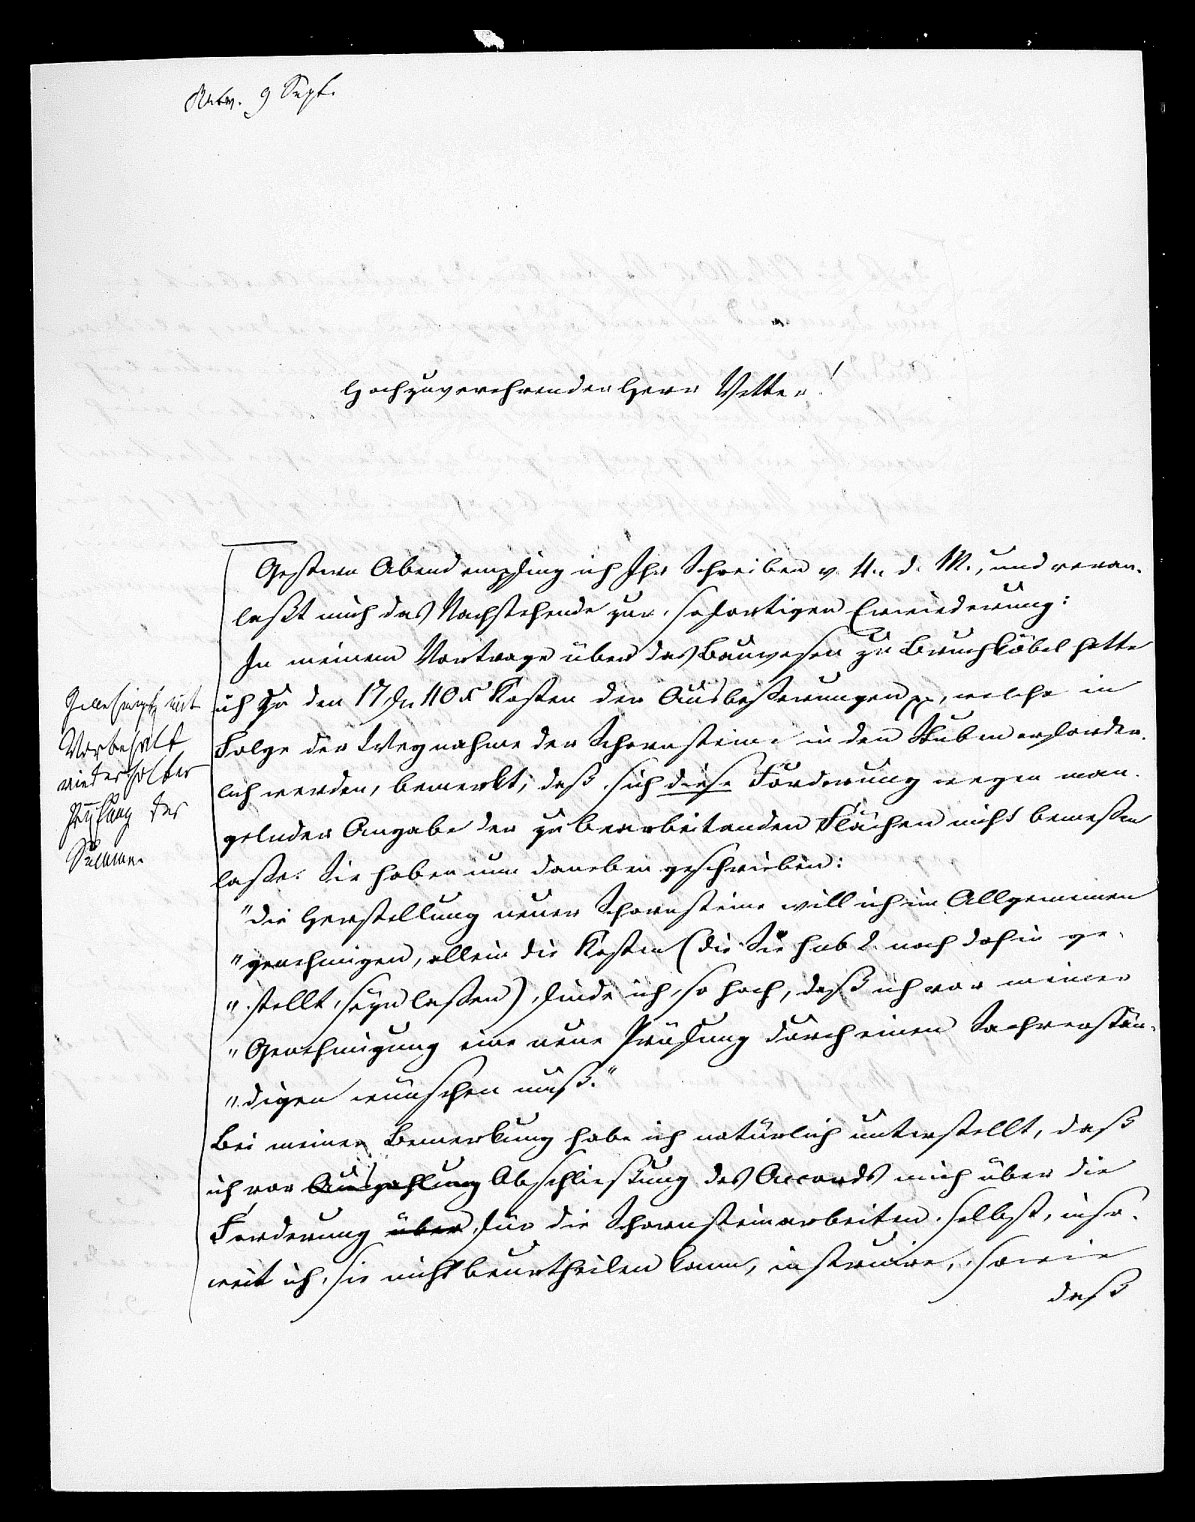 Antw. 9 Sept.
Hochzuverehrender Herr Vetter!
Gestern Abend empfing ich Ihr Schreiben v. 4. d. M., und veran-
laßt mich das Nachstehende zur sofortigen Erwiederung:
In meinem Vortrage über das Bauwesen zu Bruchköbel hatte
ich zu den 17 fl. 40 x Kosten der Ausbesserungen pp, welche in
Folge der Wegnahme der Schornsteine in den Stuben erforder-
lich werden, bemerkt, daß sich diese Forderung wegen man-
gelnder Angabe der zu bearbeitenden Flächen nicht bemeßen
laße. Sie haben nun daneben geschrieben:
"die Herstellung neuer Schornsteine will ich im Allgemeinen
"genehmigen, allein die Kosten (die Sie hab d. noch dahin ge-
"stellt seyn laßen) finde ich so hoch, daß ich vor meiner
"Genehmigung eine neue Prüfung durch einen Sachverstän-
"digen wünschen muß."
Bei meiner Bemerkung habe ich natürlich unterstellt, daß
ich vor Auszahlung Abschließung des Accords mich über die
Forderung über für die Schornsteinarbeiten selbst, inso-
weit ich sie nicht beurtheilen kann, instruire, sowie
daß
Genehmigt mit
Vorbehalt
wiederholter
Prüfung der
Summe.